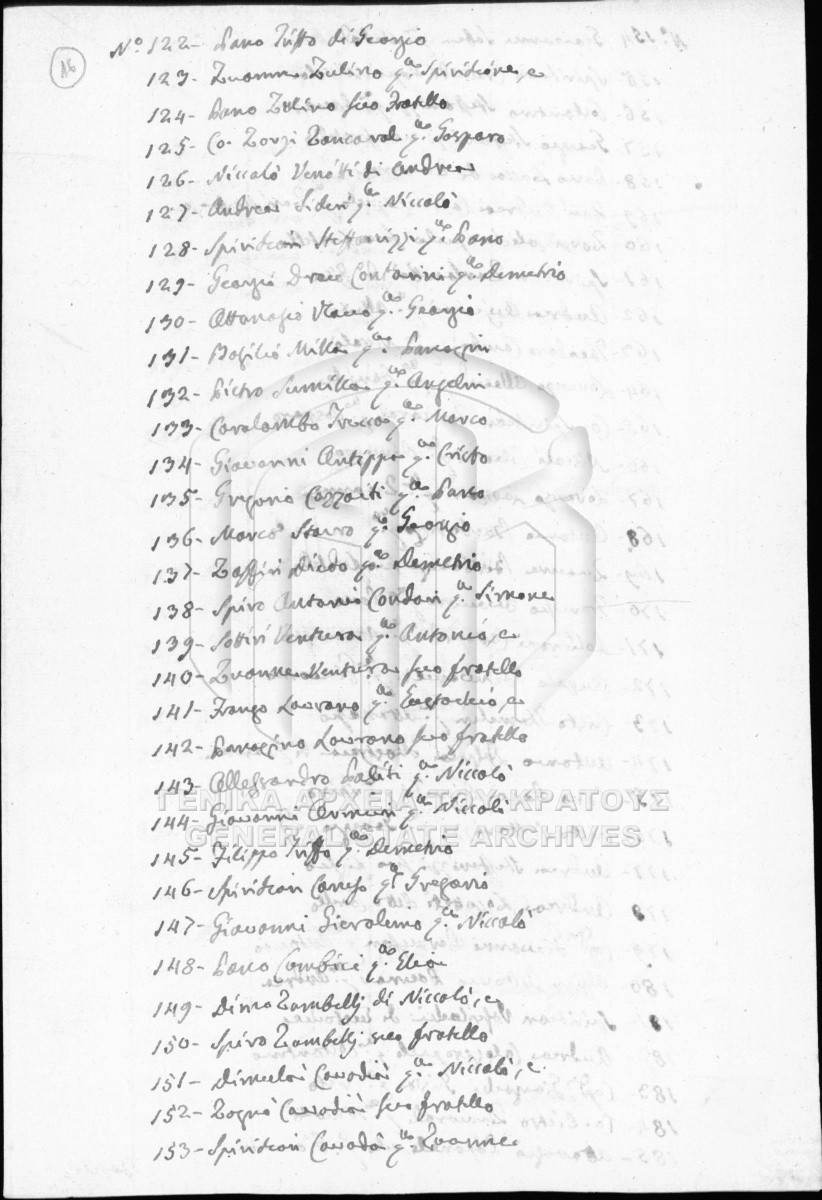 16
Nº 122- Pano Tuffo di Giorgio
123- Zuanne Zulino q.m Spiridione, e
124- Pano Zulino suo Fratello
125- Co. Zorzi Zancarol q.m Gasparo
126- Niccolò Venotti di Andrea
127- Andrea Sideri q.m Niccolò
128- Spiridion Steffanizzi q.m Pano
129- Georgio Contarini q.m Demetrio
130- Attanasio Vlaco q.m Georgio
131- Basilio Milla q.m Panagin
132- Pietro Sumilla q.m Angelin
133- Caralambo q.m Marco
134- Giovanni Antippa q.m Cristo
135- Gregorio Cazzaiti q.m Pano
136- Marco Stavro q.m Georgio
137- Zaffiri Diado q.m Demetrio
138- Spiro Antonio Condari q.m Simone
139- Sottiri Ventura q.m Antonio, e
140- Zuanne Ventura suo fratello
141- Frango Lavrano q.m Eustachio, e
142- Panagino Lavrano suo fratello
143- Allessandro Paliti q.m Niccolò
144- Giovanni Armeni q.m Niccolò
145- Filippo Tuffo q.m Demetrio
146- Spiridion Caruso q.m Gregorio
147- Giovanni Gierolemo q.m Niccolò
148- Pano Combici q.m Elia
149- Dimo Zambelli di Niccolò, e
150- Spiro Zambelli suo fratello
151- Cavodia q.m Niccolò, e
152- Cavodia suo fratello
153- Spiridion q.m Zuanne
ΓΕΝΙΚΑ ΑΡΧΕΙΑ ΤΟΥ ΚΡΑΤΟΥΣ
GENERAL STATE ARCHIVES